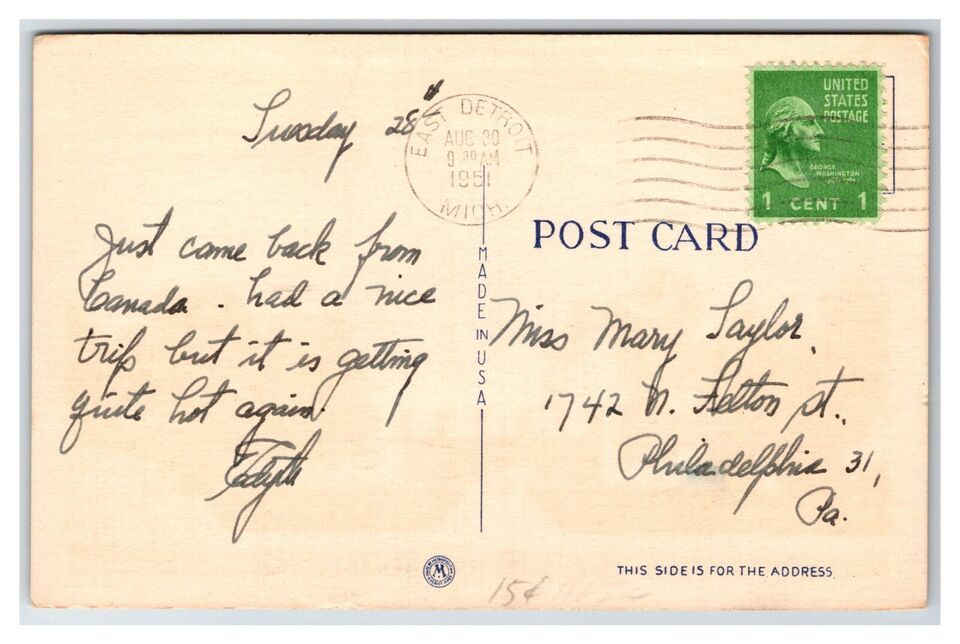 Tuesday 28th
EAST DETROIT
AUG 30
9 30 AM
1951
MICH.
UNITED
STATES
POSTAGE
GEORGE
WASHINGTON
1 CENT 1
Just came back from
Canada. had a nice
trip but it is getting
quite hot again.
Edyth
MADE IN USA
POST CARD
Miss Mary Taylor,
1742 N. Felton st.
Philadelphia 31,
Pa.
THIS SIDE IS FOR THE ADDRESS
15¢